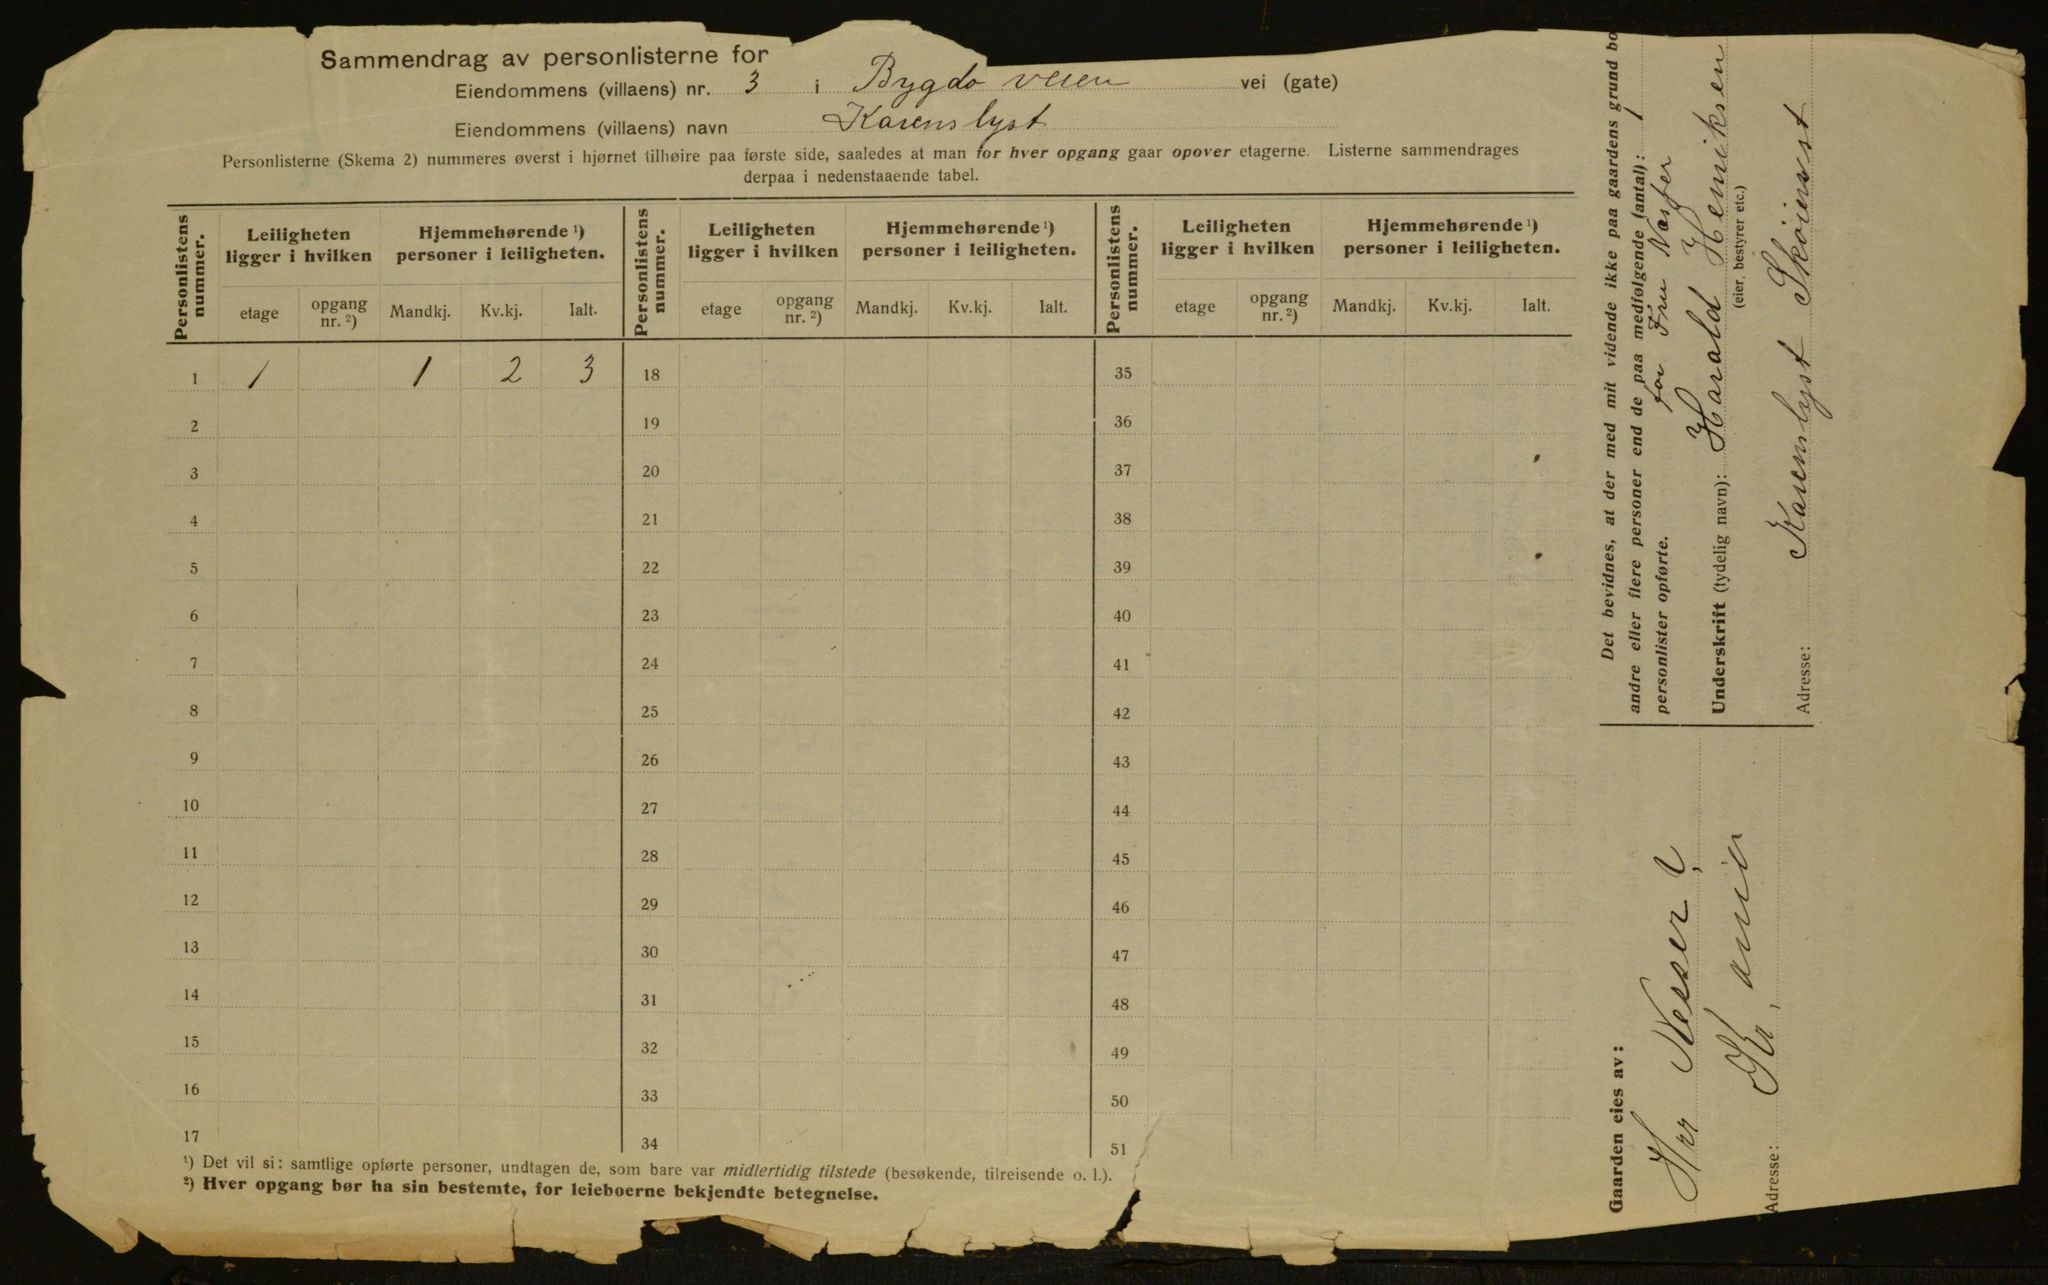 Sammendrag av personlisterne for
Eiendommens (villaens) nr. 3 i Bygdo veien vei (gate)
Eiendommens (villaens) navn Karenslyst
Personlisterne (Skema 2) nummeres øverst i hjørnet tilhøire paa første side, saaledes at man for hver opgang gaar opover etagerne. Listerne sammendrages
derpaa i nedenstaaende tabel.
Personlistens nummer. Leiligheten ligger i hvilken Hjemmehørende ¹) personer i leiligheten. Personlistens nummer. Leiligheten ligger i hvilken Hjemmehørende ¹) personer i leiligheten. Personlistens nummer. Leiligheten ligger i hvilken Hjemmehørende ¹) personer i leiligheten.
etage opgang nr. ²) Mandkj. Kv.kj. Ialt. etage opgang nr. ²) Mandkj. Kv.kj. Ialt. etage opgang nr. ²) Mandkj. Kv.kj. Ialt.
1 1 1 2 3 18 35
2 19 36
3 20 37
4 21 38
5 22 39
6 23 40
7 24 41
8 25 42
9 26 43
10 27 44
11 28 45
12 29 46
13 30 47
14 31 48
15 32 49
16 33 50
17 34 51
¹) Det vil si: samtlige opførte personer, undtagen de, som bare var midlertidig tilstede (besøkende, tilreisende o. l.).
²) Hver opgang bør ha sin bestemte, for leieboerne bekjendte betegnelse.
Det bevidnes, at der med mit vidende ikke paa gaardens grund bo
andre eller flere personer end de paa medfølgende (antal): 1
personlister opførte.
for Fru
Underskrift (tydelig navn): Harald Henriksen
(eier, bestyrer etc.)
Adresse: Karenslyst Skøienvst
Gaarden eies av:
Hrr
Adresse: Kr,